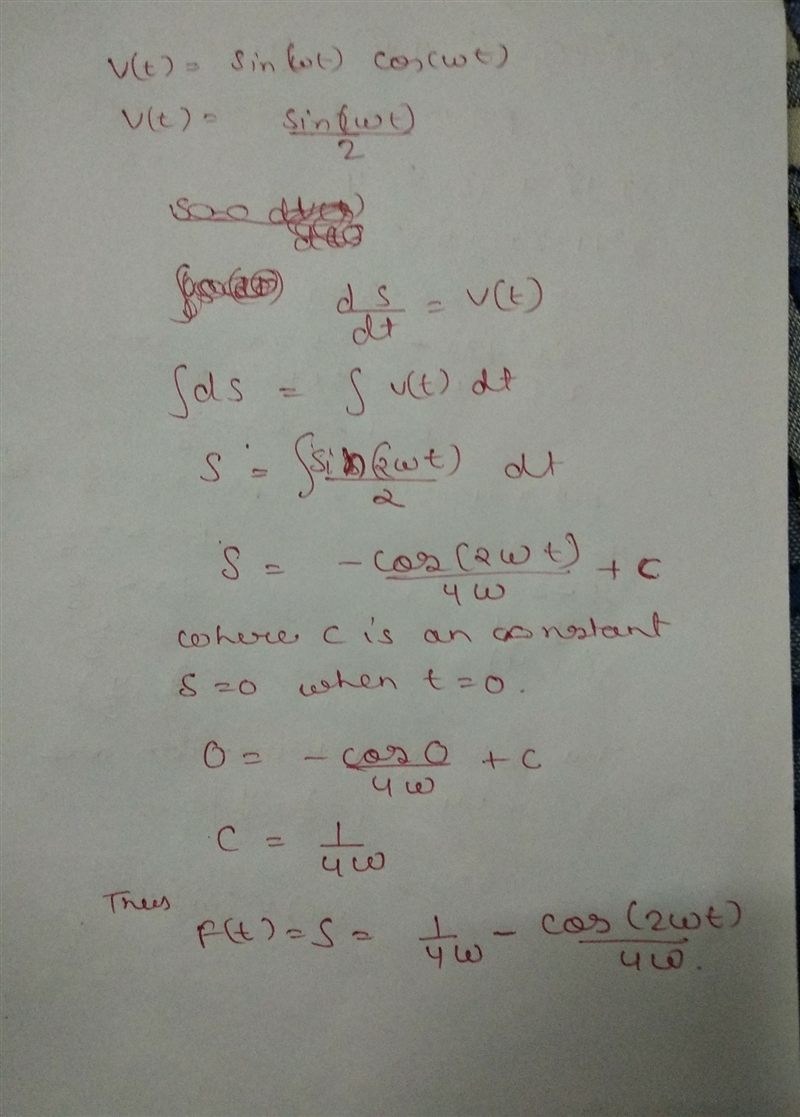 V(t) = sin(ωt) cos(ωt)
V(t) = sin(ωt)/2
ds/dt = V(t)
∫ds = ∫ v(t) dt
S = ∫sin(2ωt)/2 dt
S = -cos(2ωt)/4ω + c
where c is an constant
S=0 when t=0.
0 = -cos 0/4ω + c
C = 1/4ω
Thus
F(t) = S = 1/4ω - cos(2ωt)/4ω.